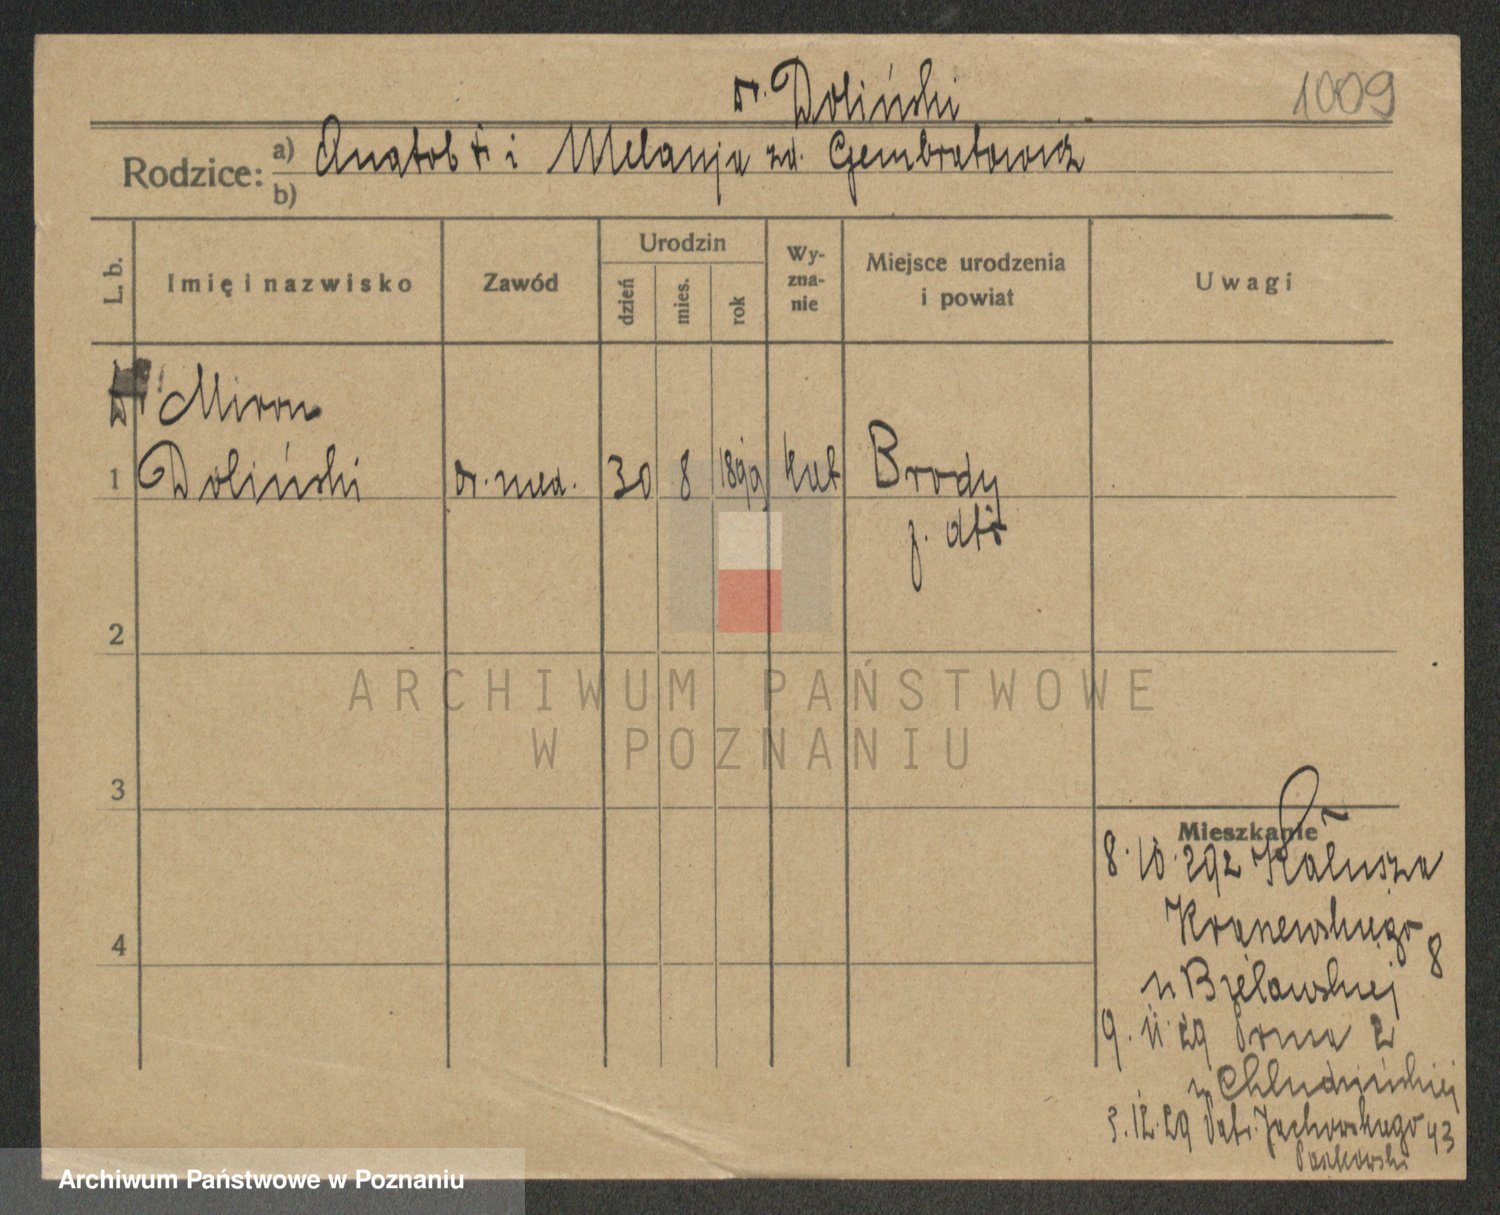 dr. Doliński
1009
Rodzice: a) Anatol † i Melanja zd. Gembratowicz
b)
L. b.
Imię i nazwisko
Zawód
Urodzin
dzień
mies.
rok
Wy-
zna-
nie
Miejsce urodzenia
i powiat
Uwagi
Miron
1 Doliński dr. med. 30 8 1899 kat Brody
p. dtto
2
ARCHIWUM PAŃSTWOWE
W POZNANIU
3
Mieszkanie
8.10.29 z Kałusza
Krasewskiego 8
u Bielawskiej
9. 11. 29 2
u Chludzińskiej
3.12.29 Patr. Jackowskiego 43
4
Archiwum Państwowe w Poznaniu